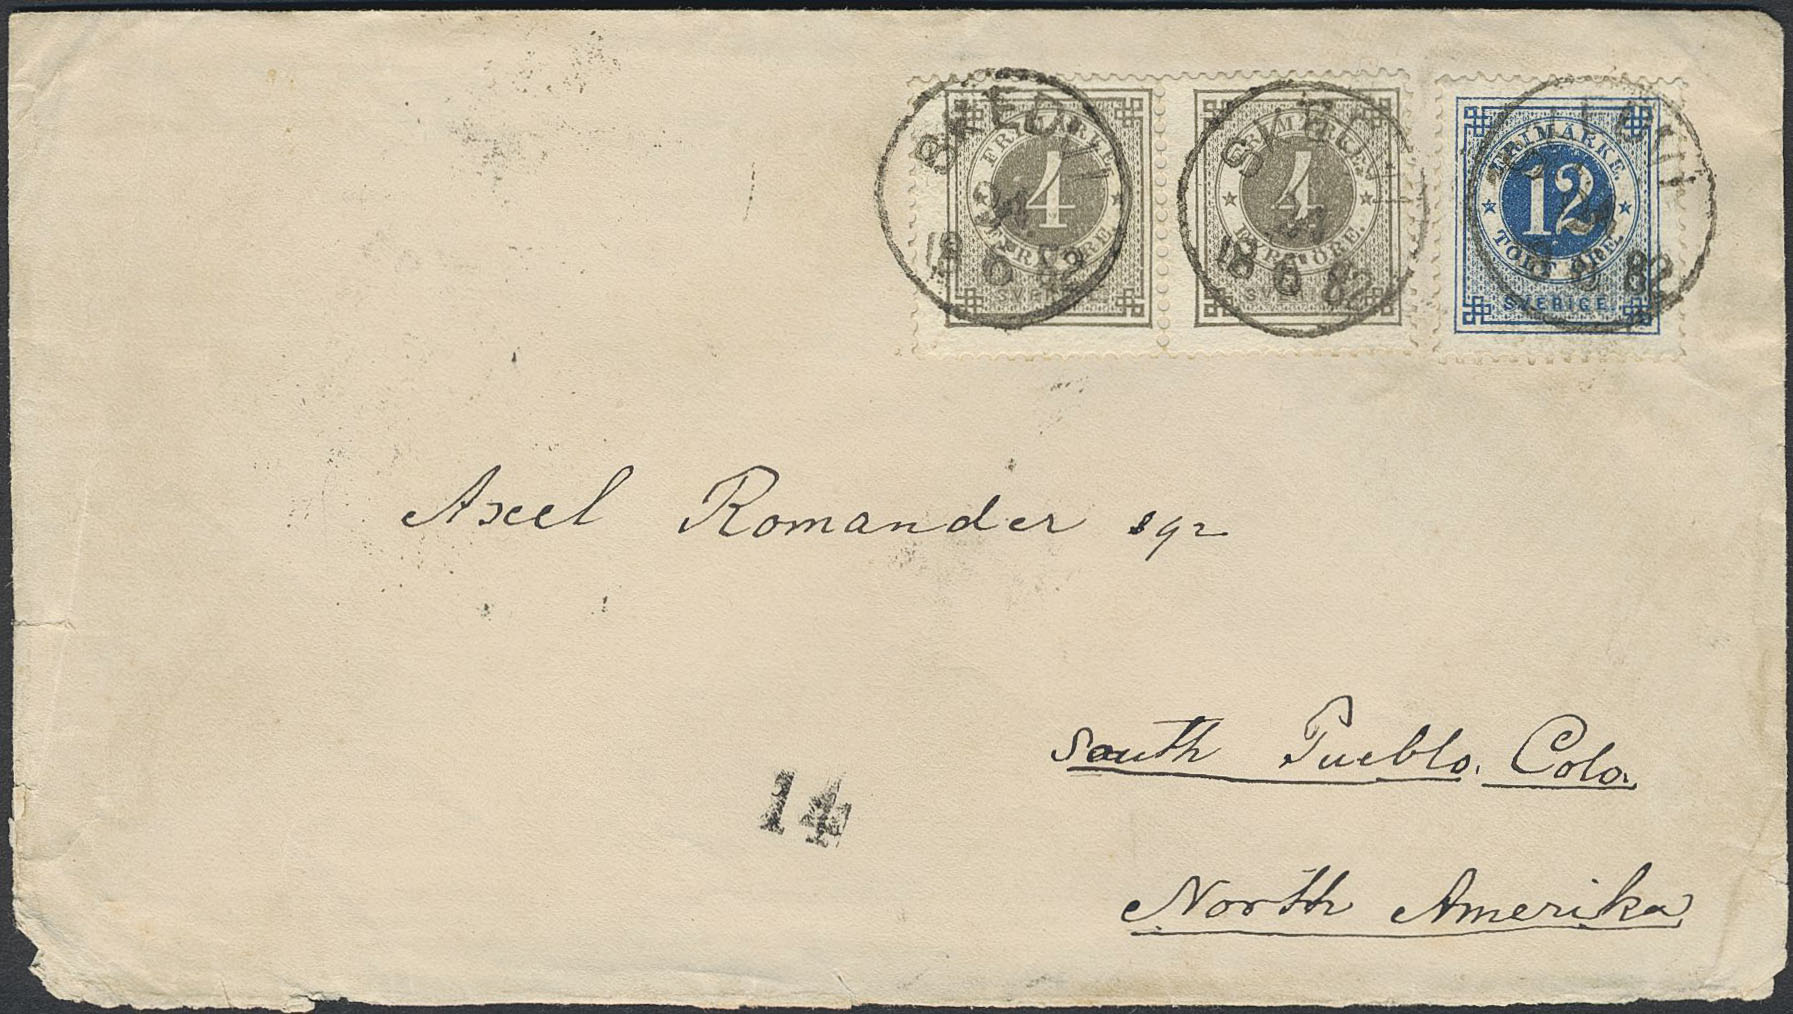 FRIMÄRKE
4
FYRA ÖRE.
SVERIGE
FRIMÄRKE
4
FYRA ÖRE.
SVERIGE
FRIMÄRKE
12
TOLF ÖRE.
SVERIGE
18 6 82
18 6 82
82
Axel Romander sqr
South Pueblo. Colo.
14
North Amerika